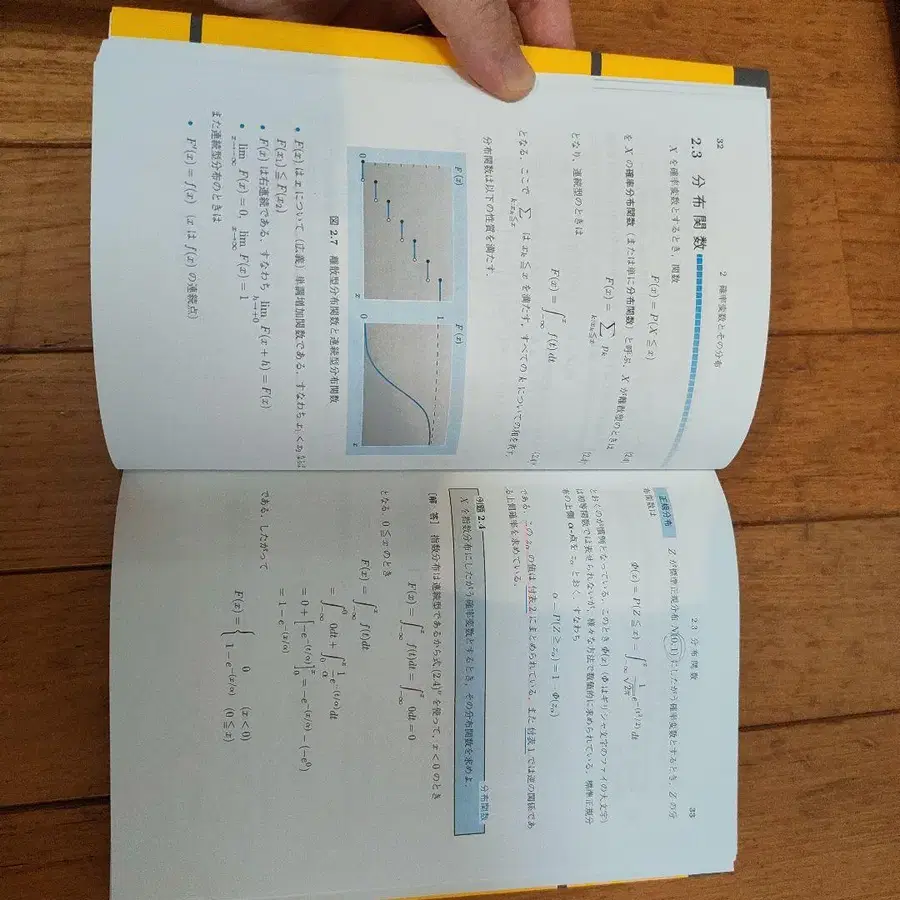 32
2 確率変数とその分布
2.3 分布関数
X を確率変数とするとき，関数
F(x) = P(X ≦ x)
を X の確率分布関数（または単に分布関数）と呼ぶ．X が離散型のときは
F(x) = ∑ pₖ
k:xₖ≦x
となり，連続型のときは
F(x) = ∫_{-∞}^{x} f(t)dt
となる．ここで ∑ は xₖ ≦ x を満たす，すべての k についての和を表す．
k:xₖ≦x
分布関数は以下の性質を満たす．
F(x)
0
x
F(x)
1
0
x
図 2.7 離散型分布関数と連続型分布関数
• F(x) は x について（広義）単調増加関数である．すなわち x₁ < x₂
F(x₁) ≦ F(x₂)
• F(x) は右連続である．すなわち lim_{h→+0} F(x + h) = F(x)
• lim_{x→-∞} F(x) = 0, lim_{x→∞} F(x) = 1
また連続型分布のときは
• F′(x) = f(x) （x は f(x) の連続点）
2.3 分布関数
33
正規分布 Z が標準正規分布 N(0,1) にしたがう確率変数とするとき，Z の分
布関数は
Φ(x) = P(Z ≦ x) = ∫_{-∞}^{x} 1/√2π e^{-(t²/2)} dt
とおくのが慣例となっている．このとき Φ(x)（Φ はギリシャ文字のファイの大文字）
は初等関数では表せられないが，様々な方法で数値的に求められている．標準正規分
布の上側 α-点を zα とおく．すなわち
α = P(Z ≧ zα) = 1 - Φ(zα)
である．この zα の値は付表 2 にまとめられている．また付表 1 では逆の関係であ
る上側確率を求めている．
例題 2.4
分布関数
X を指数分布にしたがう確率変数とするとき，その分布関数を求めよ．
［解 答］ 指数分布は連続型であるから式 (2.4)″ を使って，x < 0 のとき
F(x) = ∫_{-∞}^{x} f(t)dt = ∫_{-∞}^{x} 0dt = 0
となる．0 ≦ x のとき
F(x) = ∫_{-∞}^{x} f(t)dt
= ∫_{-∞}^{0} 0dt + ∫_{0}^{x} 1/α e^{-(t/α)} dt
= 0 + [-e^{-(t/α)}]_{0}^{x} = -e^{-(x/α)} - (-e⁰)
= 1 - e^{-(x/α)}
である．したがって
F(x) = { 0 (x < 0)
1 - e^{-(x/α)} (0 ≦ x)